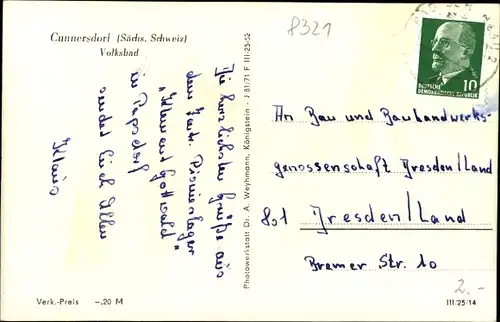 8321
Cunnersdorf (Sächs. Schweiz)
Volksbad
DEUTSCHE
DEMOKRATISCHE REPUBLIK
10
Die herzlichsten Grüße aus
dem Zentr. Pionierlager
"Klement Gottwald"
in Papsdorf
sendet Euch Allen
Klaus
Photowerkstatt Dr. A. Weyhmann, Königstein · J 81/71 F III-25-52
An Bau und Bauhandwerks-
genossenschaft Dresden/Land
801 Dresden/Land
Bremer Str. 10
2.-
Verk.-Preis -,20 M
III/25/14